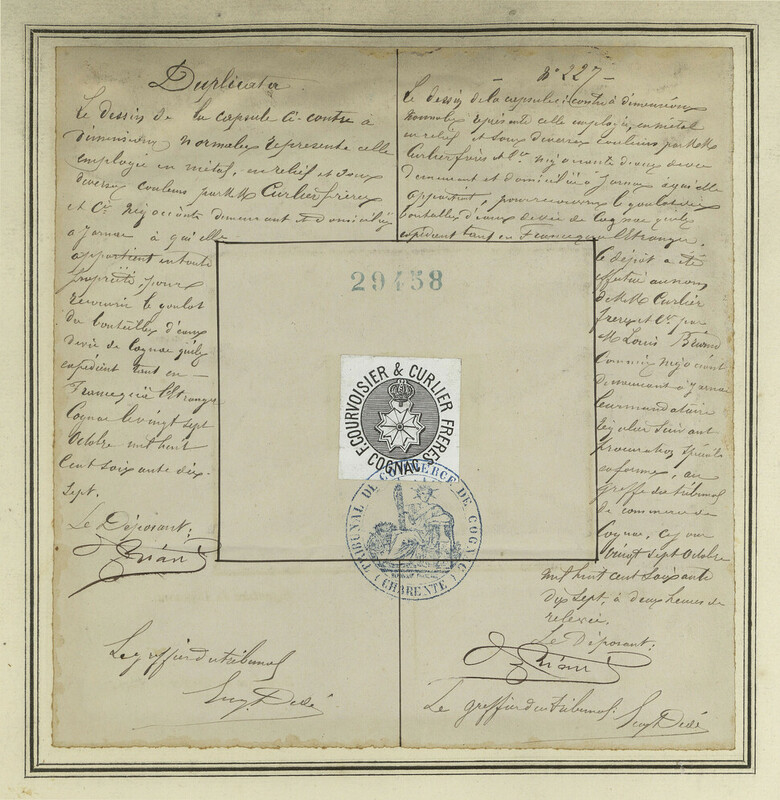 Duplicata
Le dessin de la capsule ci-contre à
dimensions normales représente celle
employée en métal, en relief et sous
diverses couleurs par MM Curlier frères
et Cie négociants demeurant et domiciliés
à Jarnac à qui elle
appartient en toute
propriété, pour
recouvrir le goulot
de bouteilles d'eaux
de vie de Cognac qu'ils
expédient tant en
France qu'à l'Etranger
Cognac le vingt sept
Octobre mil huit
cent soixante dix-
sept.
Le Déposant:
Le greffier du tribunal
Eug. Dédé
N° 227
Le dessin de la capsule ci-contre à dimensions
normales représente celle employée, en métal
en relief et sous diverses couleurs par MM
Curlier frères et Cie négociants d'eaux de vie
demeurant et domiciliés à Jarnac à qui elle
appartient, pour recouvrir le goulot des
bouteilles d'eaux de vie de Cognac qu'ils
expédient tant en France qu'à l'Etranger.
Le dépôt a été
effectué au nom
de MM Curlier
frères et Cie par
M Louis
Commis négociant
demeurant à Jarnac
leur mandataire
régulier suivant
procuration spéciale
en forme, au
greffe du tribunal
de commerce de
Cognac, ce jour
vingt sept Octobre
mil huit cent soixante
dix sept, à deux heures de
relevée.
Le Déposant:
Le greffier du tribunal:
Eug Dédé
29458
F. COURVOISIER & CURLIER FRERES
COGNAC
TRIBUNAL DE COMMERCE DE COGNAC
(CHARENTE)